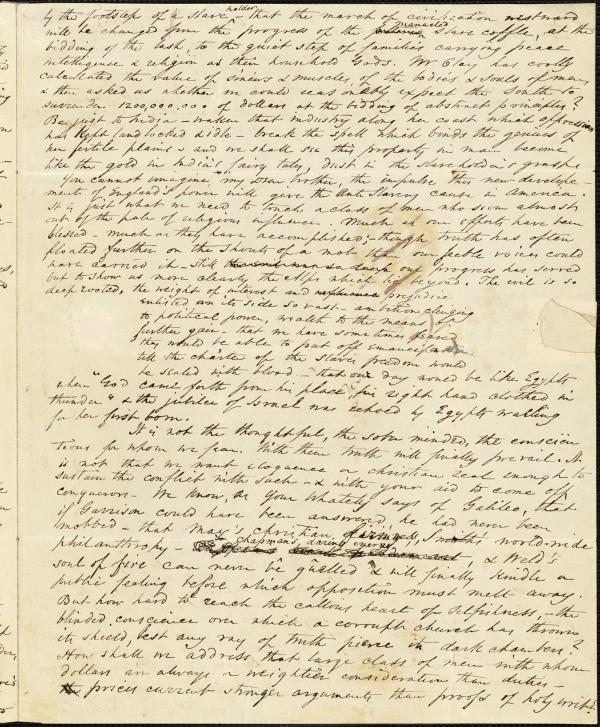 by the footstep of a slave-holder - that the march of civilization westward
will be changed from the progress of the manacled slave coffle, at the
bidding of the lash, to the quiet step of families carrying peace
intelligence & religion as their household Gods. Mr Clay has coolly
calculated the value of sinews & muscles, of the bodies & souls of men,
& then asked us whether we could reasonably expect the South to
surrender 1200,000,000 of dollars at the bidding of abstract principles?
Be just to India - waken that industry along her coast which oppression
has kept landlocked & idle - break the spell which binds the genius of
her fertile plains - and we shall see this property in man become
like the gold in India's fairy tales, dust in the slaveholder's grasp.
You cannot imagine my dear brother, the impulse this new develope-
ment of England's power will give the Anti Slavery cause in America.
It is just what we need to touch a class of men who seem almost
out of the pale of religious influence. Much as our efforts have been
blessed - much as they have accomplished; though truth has often
floated further on the shouts of a mob than our feeble voices could
have carried it - still our progress has served
but to show us more clearly the Alps which lie beyond. The evil is so
deep rooted, the weight of interest and prejudice
enlisted on its side so vast - ambition clinging
to political power, wealth to the means of
further gain - that we have sometimes feared
they would be able to put off emancipation
till the charter of the slaves freedom would
be sealed with blood - that our day would be like Egypts
when "God came forth from his place, his right hand clothed in
thunder" & the jubilee of Israel was echoed by Egypts wailing
for her first born.
It is not the thoughtful, the sober minded, the conscien
tious for whom we fear. With them truth will finally prevail. It
is not that we want eloquence or christian zeal enough to
sustain the conflict with such - & with your aid to come off
conquerors - We know, as your Whately says of Galileo, that
if Garrison could have been answered, he had never been
mobbed - that May's christian firmness, world-wide
philanthropy - Chapman's daring energy, & Weld's
soul of fire can never be quelled & will finally kindle a
public feeling before which opposition must melt away.
But how hard to reach the callous heart of selfishness - the
blinded conscience over which a corrupt church has thrown
its shield, lest any ray of truth pierce its dark chambers?
How shall we address that large class of men with whom
dollars are always a weightier consideration than duties -
prices current stronger arguments than proofs of holy writ?